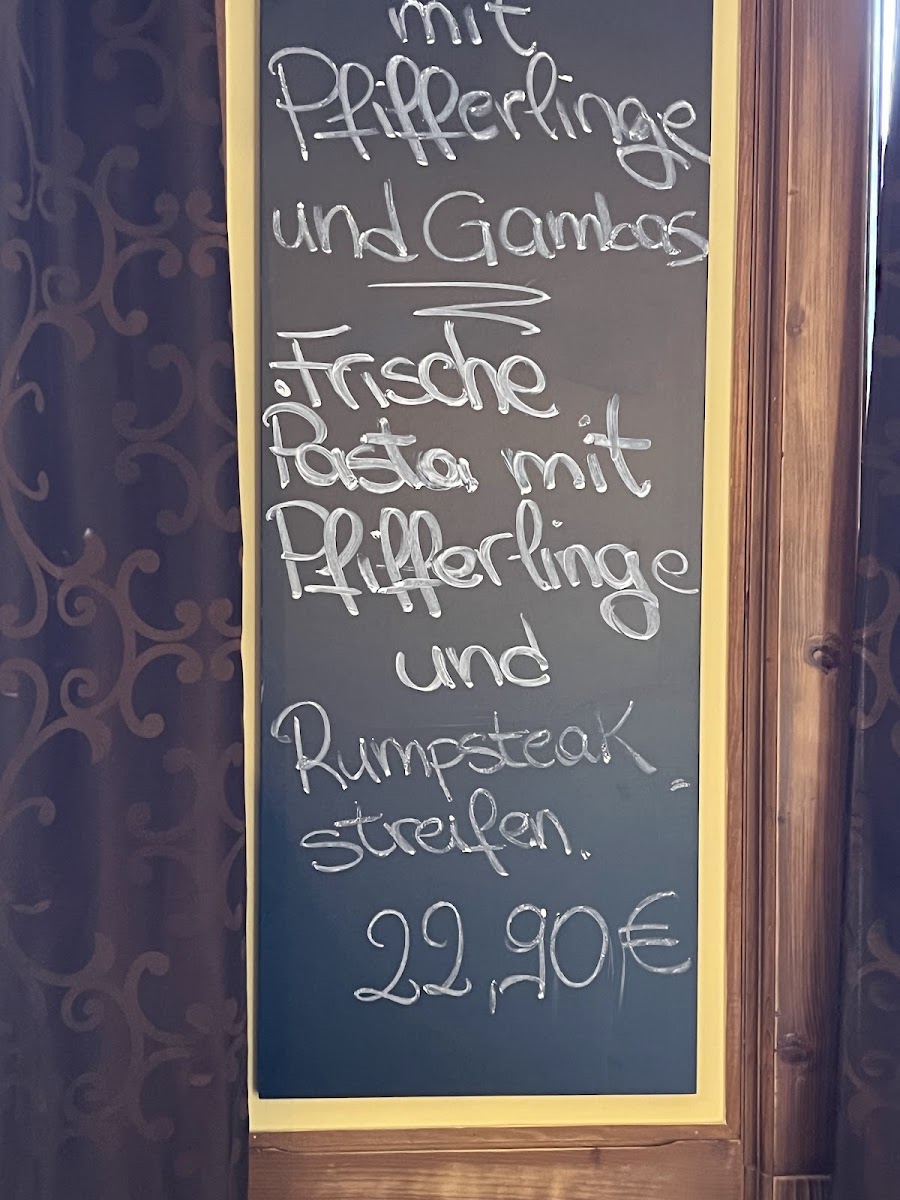 mit
Pfifferlinge
und Gambas
. Frische
Pasta mit
Pfifferlinge
und
Rumpsteak =
streifen.
22,90€